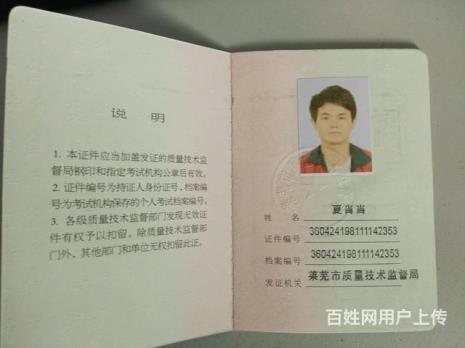 说 明
1. 本证件应当加盖发证的质量技术监
督局钢印和指定考试机构公章后有效。
2. 证件编号为持证人身份证号，档案编
号为考试机构保存的个人考试档案编号。
3. 各级质量技术监督部门发现无效证
件有权予以扣留。除质量技术监督部
门外，其他部门和单位无权扣留此证。
姓 名 夏肖肖
证件编号 360424198111142353
档案编号 360424198111142353
发证机关 莱芜市质量技术监督局
百姓网用户上传